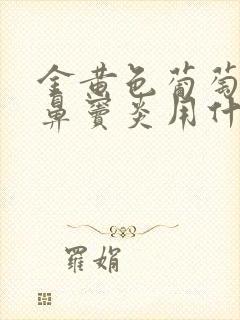 金黄色葡萄
鼻窦炎用什
羅娟